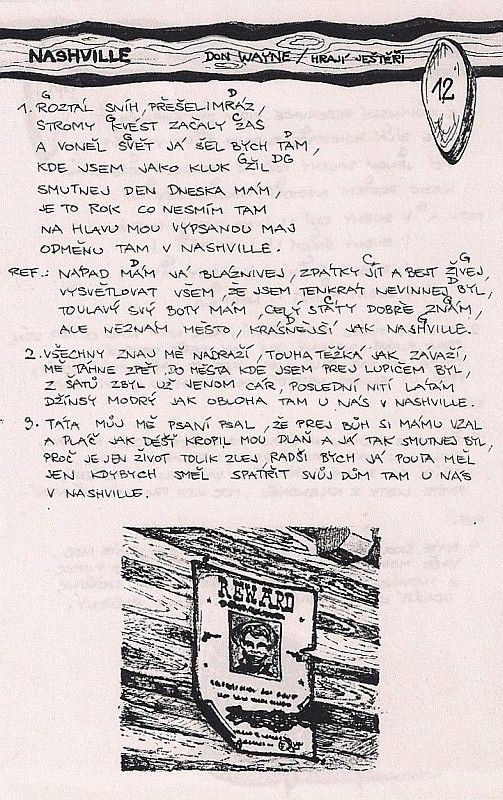 NASHVILLE DON WAYNE / HRAJÍ JEŠTĚŘI
12
G D
1. ROZTÁL SNÍH, PŘEŠEL I MRÁZ,
G C
STROMY KVÉST ZAČALY ZAS
G D
A VONĚL SVĚT JÁ ŠEL BYCH TAM,
G DG
KDE JSEM JAKO KLUK ŽIL
SMUTNEJ DEN DNESKA MÁM,
JE TO ROK CO NESMÍM TAM
NA HLAVU MOU VYPSANOU MAJ
ODMĚNU TAM V NASHVILLE.
D C G
REF.: NÁPAD MÁM JÁ BLÁZNIVEJ, ZPÁTKY JÍT A BEJT ŽIVEJ,
D
VYSVĚTLOVAT VŠEM, ŽE JSEM TENKRÁT NEVINNEJ BYL,
C G
TOULAVÝ SVÝ BOTY MÁM, CELÝ STÁTY DOBŘE ZNÁM,
D G
ALE NEZNÁM MĚSTO, KRÁSNĚJŠÍ JAK NASHVILLE.
2. VŠECHNY ZNAJ MĚ NÁDRAŽÍ, TOUHA TĚŽKÁ JAK ZÁVAŽÍ,
MĚ TÁHNE ZPĚT, DO MĚSTA KDE JSEM PREJ LUPIČEM BYL,
Z ŠATŮ ZBYL UŽ JENOM CÁR, POSLEDNÍ NITÍ LÁTÁM
DŽÍNSY MODRÝ JAK OBLOHA TAM U NÁS V NASHVILLE.
3. TÁTA MŮJ MĚ PSANÍ PSAL, ŽE PREJ BŮH SI MÁMU VZAL
A PLÁČ JAK DÉŠŤ KROPIL MOU DLAŇ A JÁ TAK SMUTNEJ BYL,
PROČ JE JEN ŽIVOT TOLIK ZLEJ, RADŠI BYCH JÁ POUTA MĚL
JEN KDYBYCH SMĚL SPATŘIT SVŮJ DŮM TAM U NÁS
V NASHVILLE.
REWARD